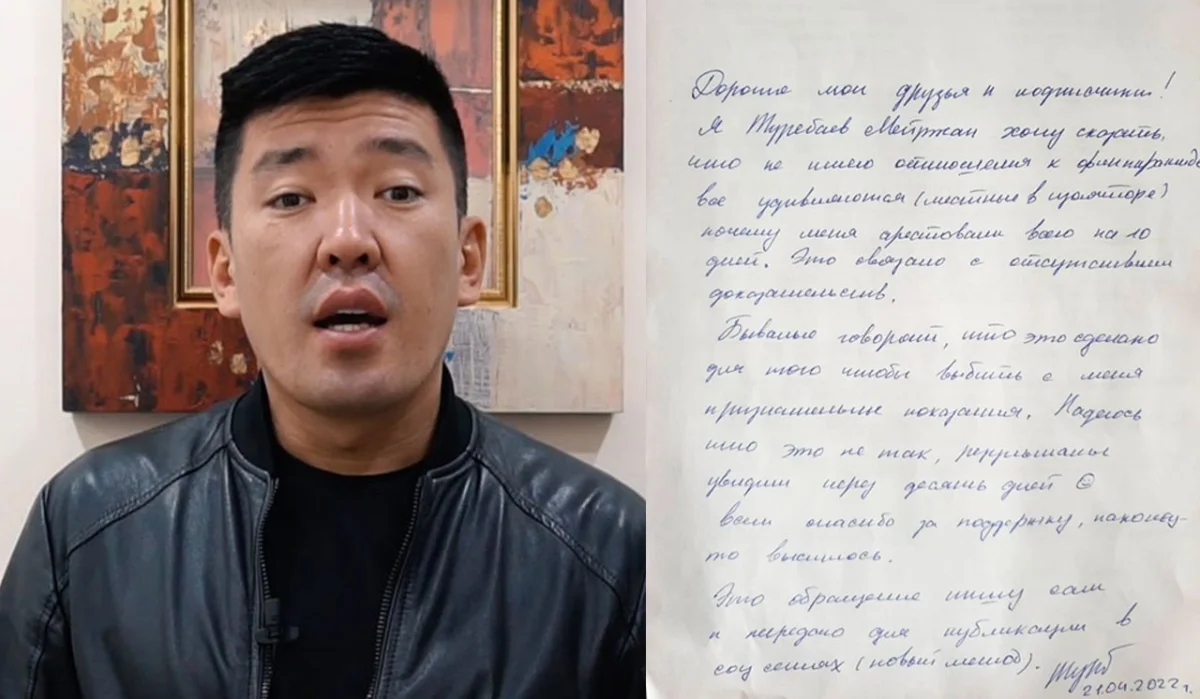 Дорогие мои друзья и подписчики!
Я Туребаев Мейржан хочу сказать,
что не имею отношения к финпирамиде
все удивляются (местные в изоляторе)
почему меня арестовали всего на 10
дней. Это связано с отсутствием
доказательств.
Бывалые говорят, что это сделано
для того чтобы выбить с меня
признательные показания. Надеюсь
что это не так, результаты
увидим через десять дней ☺
всем спасибо за поддержку, наконец-
то выспилось.
Это обращение пишу сам
и передано для публикации в
соц сетях (новый метод).
21.04.2022 г.